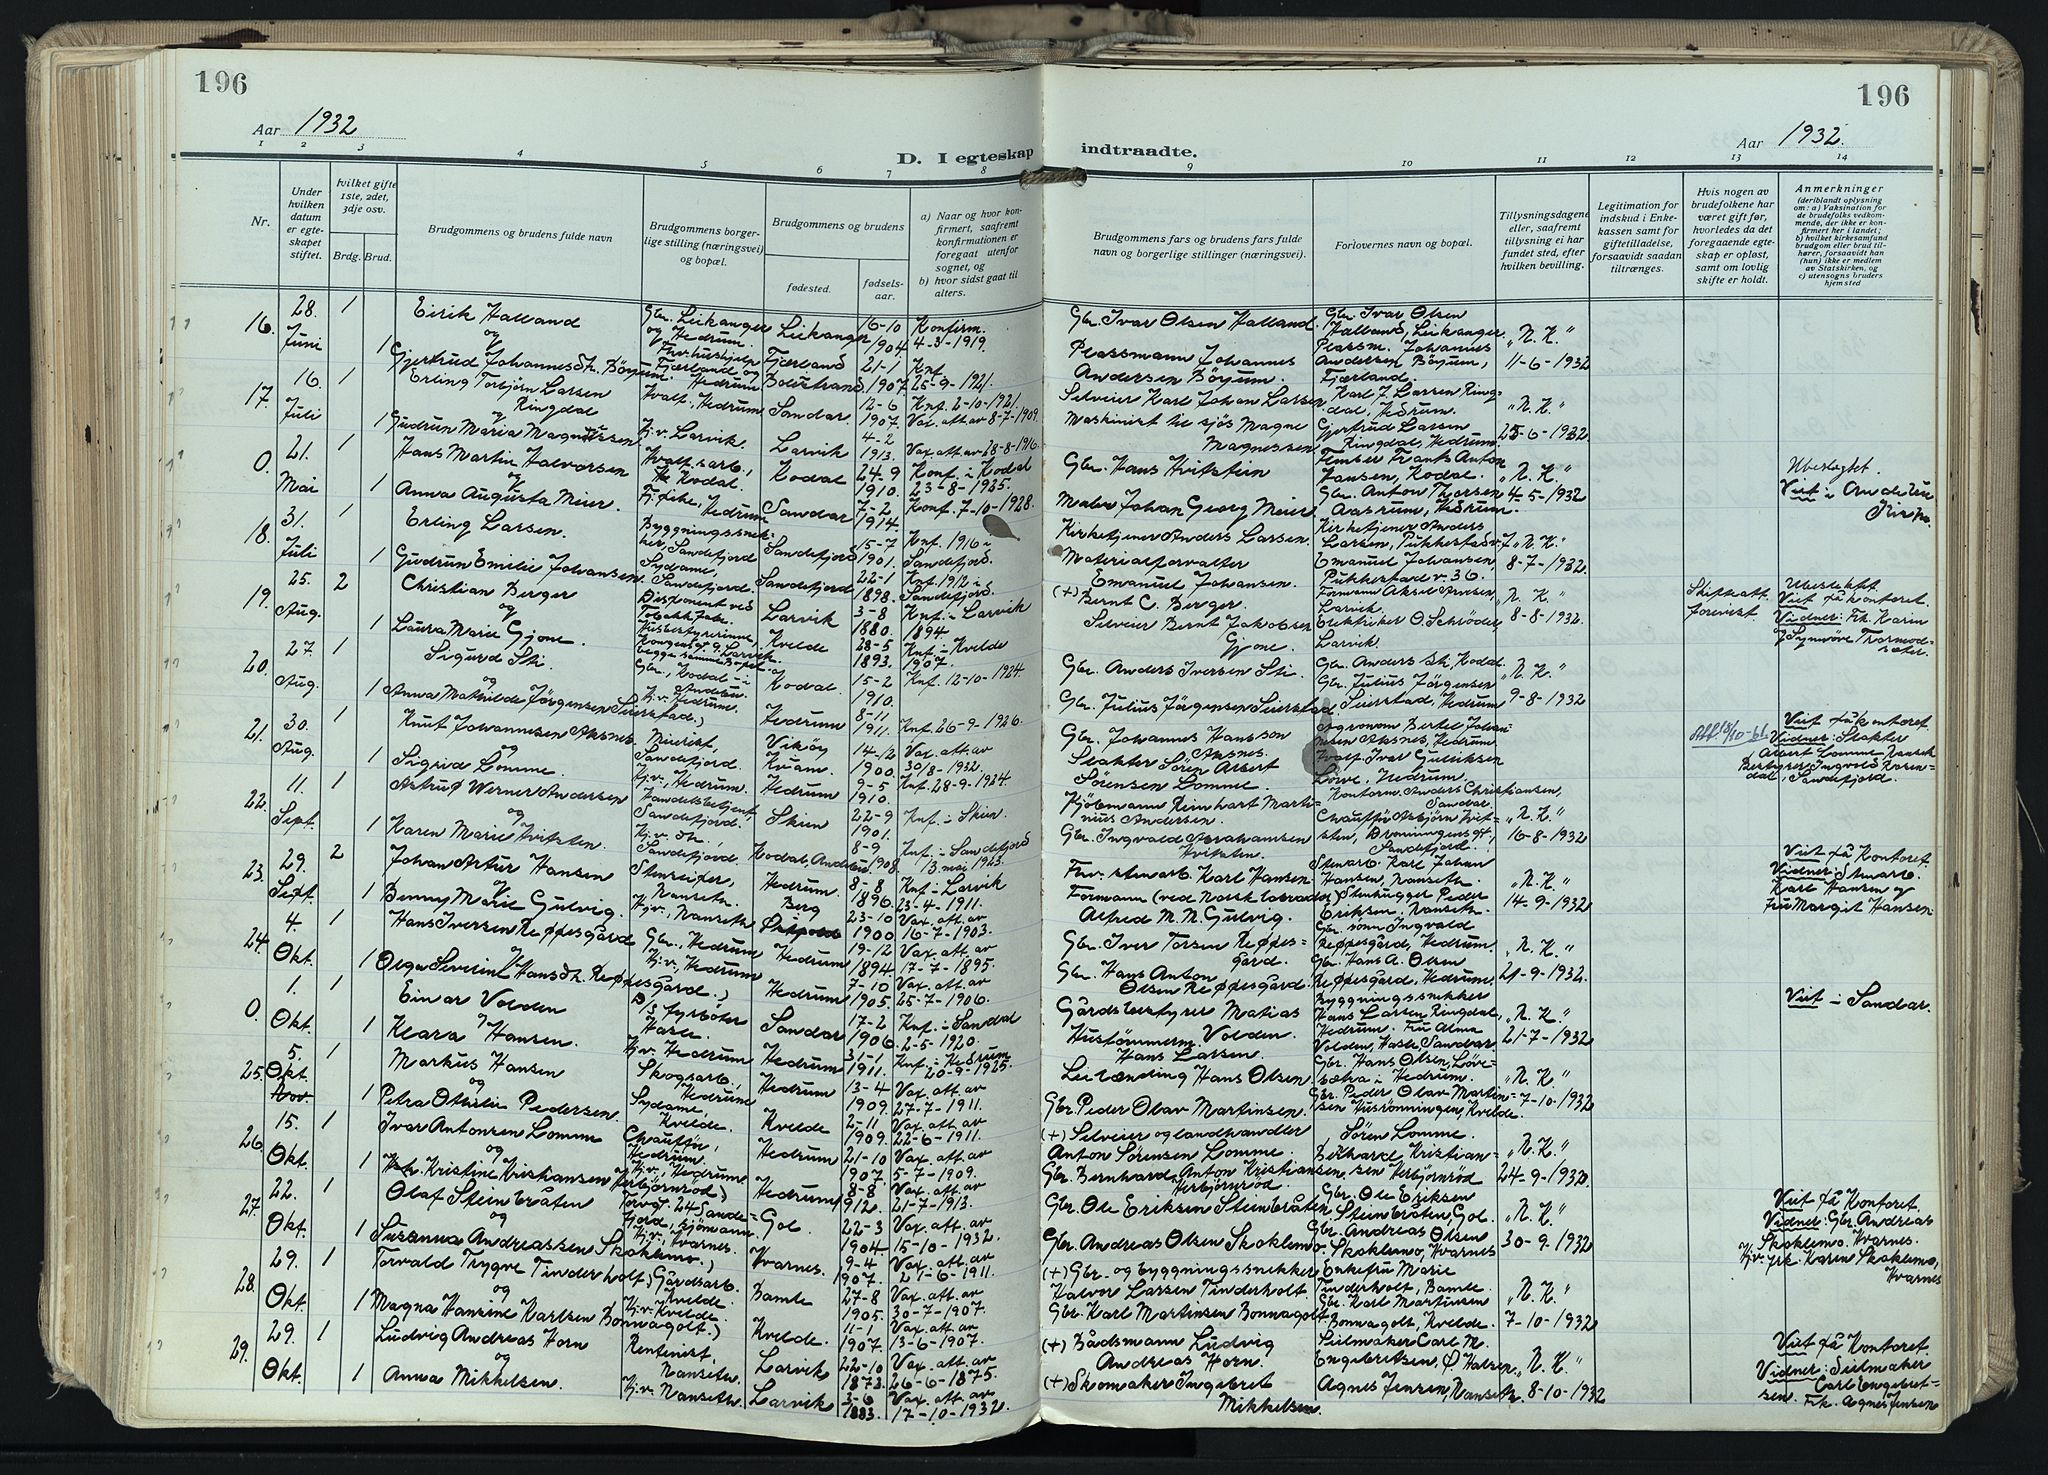 196
196
Aar 1932
Aar 1932.
D. I egteskap indtraadte.
1 2 3 4 5 6 7 8 9 10 11 12 13 14
Nr.
Under hvilken datum er egteskapet stiftet.
hvilket gifte 1ste, 2det, 3dje osv.
Brdg. Brud.
Brudgommens og brudens fulde navn
Brudgommens borgerlige stilling (næringsvei) og bopæl.
Brudgommens og brudens
fødested.
fødselsaar.
a) Naar og hvor konfirmert, saafremt konfirmationen er foregaat utenfor sognet, og
b) hvor sidst gaat til alters.
Brudgommens fars og brudens fars fulde navn og borgerlige stillinger (næringsvei).
Forlovernes navn og bopæl.
Tillysningsdagene eller, saafremt tillysning ei har fundet sted, efter hvilken bevilling.
Legitimation for indskud i Enkekassen samt for giftetilladelse, forsaavidt saadan tiltrænges.
Hvis nogen av brudefolkene har været gift før, hvorledes da det foregaaende egteskap er opløst, samt om lovlig skifte er holdt.
Anmerkninger (deriblandt oplysning om: a) Vaksination for de brudefolks vedkommende, der ikke er konfirmert her i landet; b) hvilket kirkesamfund brudgom eller brud tilhører, forsaavidt han (hun) ikke er medlem av Statskirken, og c) utensogns bruders hjemsted
16. 28. Juni 1 Eirik Halland Gbr. Leikanger og Hedrum. Leikanger 16-10 1904 Konfirm. 4-3-1919. Gbr. Ivar Olsen Halland. Gbr. Ivar Olsen Halland, Leikanger, "N. K."
og
1 Gjertrud Johannesdh. Böyum. Fjærland og Hedrum Fjærland 21-1 1907. Knf. 25-9-1921. Plassmann Johannes Andersen Böyum. Plassm. Johannes Andersen Böyum, Fjærland. 11-6-1932
17. 16. Juli 1 Erling Torbjörn Larsen Ringdal Hvalf., Hedrum. Sandar. 12-6 1907. Knf. 2-10-1921. Selveier Karl Johan Larsen Karl J. Larsen Ringdal, Hedrum. "N. K."
og
1 Gudrun Maria Magnussen Hj.v. Larvik. Larvik 4-2 1913. Maskinist til sjös Magne Magnessen Gjertrud Larsen Ringdal, Hedrum. 25-6-1932
0. 21. Mai 1 Hans Martin Halvorsen Hvalf.sarb., Kodal. Kodal 24-9 1910. Konf. i Kodal 23-8-1925. Gbr. Hans Hvitstein Frants Anton Jansen, Kodal. "N. K." Ubeslegtet.
og
1 Anna Augusta Meier. Hedrum Sandar 7-2 1914. Konf. 7-10-1928. Maler Johan Georg Meier Gbr. Anton Thorsen Aasrum, Hedrum. 4-5-1932 Viet i Andebu Kirke.
18. 31. Juli 1 Erling Larsen. Byggningssnekker, Sandefjord Sandefjord 15-7 1901. Knf. 1916 i Sandefjord. Kirketjener Anders Larsen. Kirketjener Anders Larsen, "N. K."
1 Gudrun Emilie Johansen Sydame, Sandefjord. Sandefjord 22-1 1898. Knf. 1912 i Sandefjord. Materialforvalter Emanuel Johansen. Emanuel Johansen, Pukkestad v. 36. 8-7-1932.
19. 25. Aug. 2 Christian Berger Disponent ved Larvik 3-8 1880. Knf. i Larvik 1894. (+) Bernt C. Berger. Larvik. "N. K." Skifteatt. forevist. Ubeslektet Viet på kontoret.
og
1 Laura Marie Gjone. Kvelde 28-5 1893. Knf. i Kvelde 1907. Selveier Bernt Jakobsen Gjone. O. Schrøder, Larvik. 8-8-1932. Vidner: Frk. Karin
20. 27. Aug. 1 Sigurd Sti. Gbr., Kodal i Andebu. Kodal. 15-2 1910. Knf. 12-10-1924. Gbr. Anders Iversen Sti. Gbr. Anders Sti, Kodal. "N. K."
og
1 Anna Mathilde Jørgensen Seierstad. Hj.v. Hedrum. Hedrum 8-11 1911. Knf. 26-9-1926. Gbr. Julius Jørgensen Seierstad Gbr. Julius Jørgensen Seierstad, Hedrum 9-8-1932
21. 30. Aug. 1 Knut Johannessen Aksnes Meierist, Sandefjord. Vikøy Kvam. 14-12 1900. Vax. att. av 30/8-1932. Gbr. Johannes Hansson Aksnes. Agronom Bertel Johannesen Aksnes, Hedrum Viet på kontoret.
og
1 Sigrid Lomme. Hj.v., Hedrum. Hedrum 9-5 1910. Knf. 28-9-1924. Slakter Sören Albert Sörensen Lomme. Hvalf. Ivar Gulliksen Hedrum. Vidner: Slakter Albert Lomme, Nanseth Bestyrer Ingvald Rosendal, Sandefjord.
22. 11. Sept. 1 Astrup Werner Andersen Handelsbetjent, Sandefjord. Skien 22-9 1901. Knf. i Skien. Kjöbmann Reinhart Martinius Andersen. Kontorm. Anders Christiansen, Sandar. "N. K."
og
1 Karen Marie Hvitsten. Hj.v. Sandefjord. Kodal, Andebu. 8-9 1908. Knf. i Sandefjord 13. mai 1923. Gbr. Ingvald Abrahamsen Hvitsten. Chauffør Asbjørn Hvitsten, Dronningensgt., Sandefjord. 16-8-1932
23. 29. Sept. 2 Johan Artur Hansen Nanseth. Hedrum. 8-8 1896. Knf. i Larvik 23-4-1911. Fhv. stenarb. Karl Hansen. Stenarb. Karl Johan Hansen, Nanseth. "N. K." Viet på Kontoret. Vidner: Stenarb. Karl Hansen og
og
1 Benny Marie Gulvig. Hj.v., Nanseth Berg 23-10 1900 Vax. att. av 16-7-1903. Formann (ved Norsk labrador) Alfred M. N. Gulvig. Stenhugger Peder Eriksen, Nanseth. 14-9-1932 Fru Margit Hansen
24. 4. Okt. 1 Hans Iversen Reppesgård Gbr., Hedrum Hedrum 19-12 1894 Vax. att. av 17-7-1895. Gbr. Iver Torsen Reppesgård. Gbr. sönn Ingvald Reppesgård, Hedrum. "N. K."
og
1 Olga Severine Hansdh. Reppesgård. Hj.v., Hedrum Hedrum 7-10 1905. Vax. att. av 25-7-1906. Gbr. Hans Anton Olsen Reppesgård. Gbr. Hans A. Olsen Reppesgård, Hedrum. 21-9-1932.
0. 1. Okt. 1 Einar Volden D/S fyrböter Hasle. Sandar 17-2 1906. Knf. i Sandar 2-5-1920. Gårdsbestyrer Matias Volden. Byggningssnekker Hans Larsen Ringdal, Hedrum. "N. K." Viet i Sandar.
og
1 Klara Hansen. Hj.v. Hedrum Hedrum 31-1 1911. Knf. i Hedrum 20-9-1925. Hustömmerm. Hans Larsen. Fru Alma Volden, Hasle, Sandar. 21-7-1932
25. 5. Okt. Nov. 1 Markus Hansen Skogsarb., Hedrum Hedrum 13-4 1909. Vax. att. av 27-7-1911. Leilending Hans Olsen Gbr. Hans Olsen, Hedrum. "N. K."
og
1 Petra Othilie Pedersen. Sydame, Kvelde. Kvelde 2-11 1909. Vax. att. av 22-6-1911. Gbr. Peder Olav Martinsen. Gbr. Peder Olav Martinsen Husrönningen, Kvelde. 7-10-1932
26. 15. Okt. 1 Ivar Antonsen Lomme Chauffør, Hedrum. Hedrum 21-10 1907. Vax. att. av 5-7-1909. (+) Selveier og landhandler Anton Sörensen Lomme. Sören Lomme. "N. K."
og
1 Kristine Kristiansen Herbjörnröd Hj.v., Hedrum Hedrum 8-8 1912. Vax. att. av 21-7-1913. Gbr. Bernhard Anton Kristiansen Herbjörnröd. Kristiansen Herbjörnröd 24-9-1932.
27. 22. Okt. 1 Olaf Steinbråten Torvgt. 24, Sandefjord, sjömann. Gol. 22-3 1904. Vax. att. av 15-10-1932. Gbr. Ole Eriksen Steinbråten Gbr. Ole Eriksen Steinbråten, Gol. "N. K." Viet på Kontoret.
og
1 Susanna Andreassen Skoklemo. Hj.v., Hvarnes. Hvarnes. 9-4 1907. Vax. att. av 21-6-1911. Gbr. Andreas Olsen Skoklemo. Gbr. Andreas Olsen Skoklemo, Hvarnes 30-9-1932 Vidner: Gbr. Andreas Skoklemo, Hvarnes. Hj.v. frk. Karen Skoklemo, Hvarnes
28. 29. Okt. 1 Torvald Trygve Tinderholt Gårdsarb. Kvelde. Bamle 27-8 1905. Vax. att. av 30-7-1907. (+) Gbr. og byggningssnekker Halvor Larsen Tinderholt. Enkefru Marie Tinderholt, Bamle. "N. K."
og
1 Magna Hansine Karlsen Bonnagolt. Hj.v. Kvelde. Kvelde. 11-1 1907. Vax. att. av 13-6-1907. Gbr. Karl Martinsen Bonnagolt. Gbr. Karl Martinsen Bonnagolt, Kvelde. 7-10-1932
29. 29. Okt. 1 Ludvig Andreas Horn Rentenist, Nanseth. Larvik 22-10 1873. Vax. att. av 26-6-1875. (+) Bådsmann Ludvig Andreas Horn. Seilmaker Carl M. Engebretsen, Ø Halsen, "N. K." Viet på Kontoret.
og
1 Anna Mikkelsen. Hj.v. Nanseth. Larvik 3-6 1883. Vax. att. av 17-10-1932. (+) Skomaker Ingebret Mikkelsen. Agnes Jensen, Nanseth. 8-10-1932 Vidner: Seilmaker Carl Engebretsen. Frk. Agnes Jensen